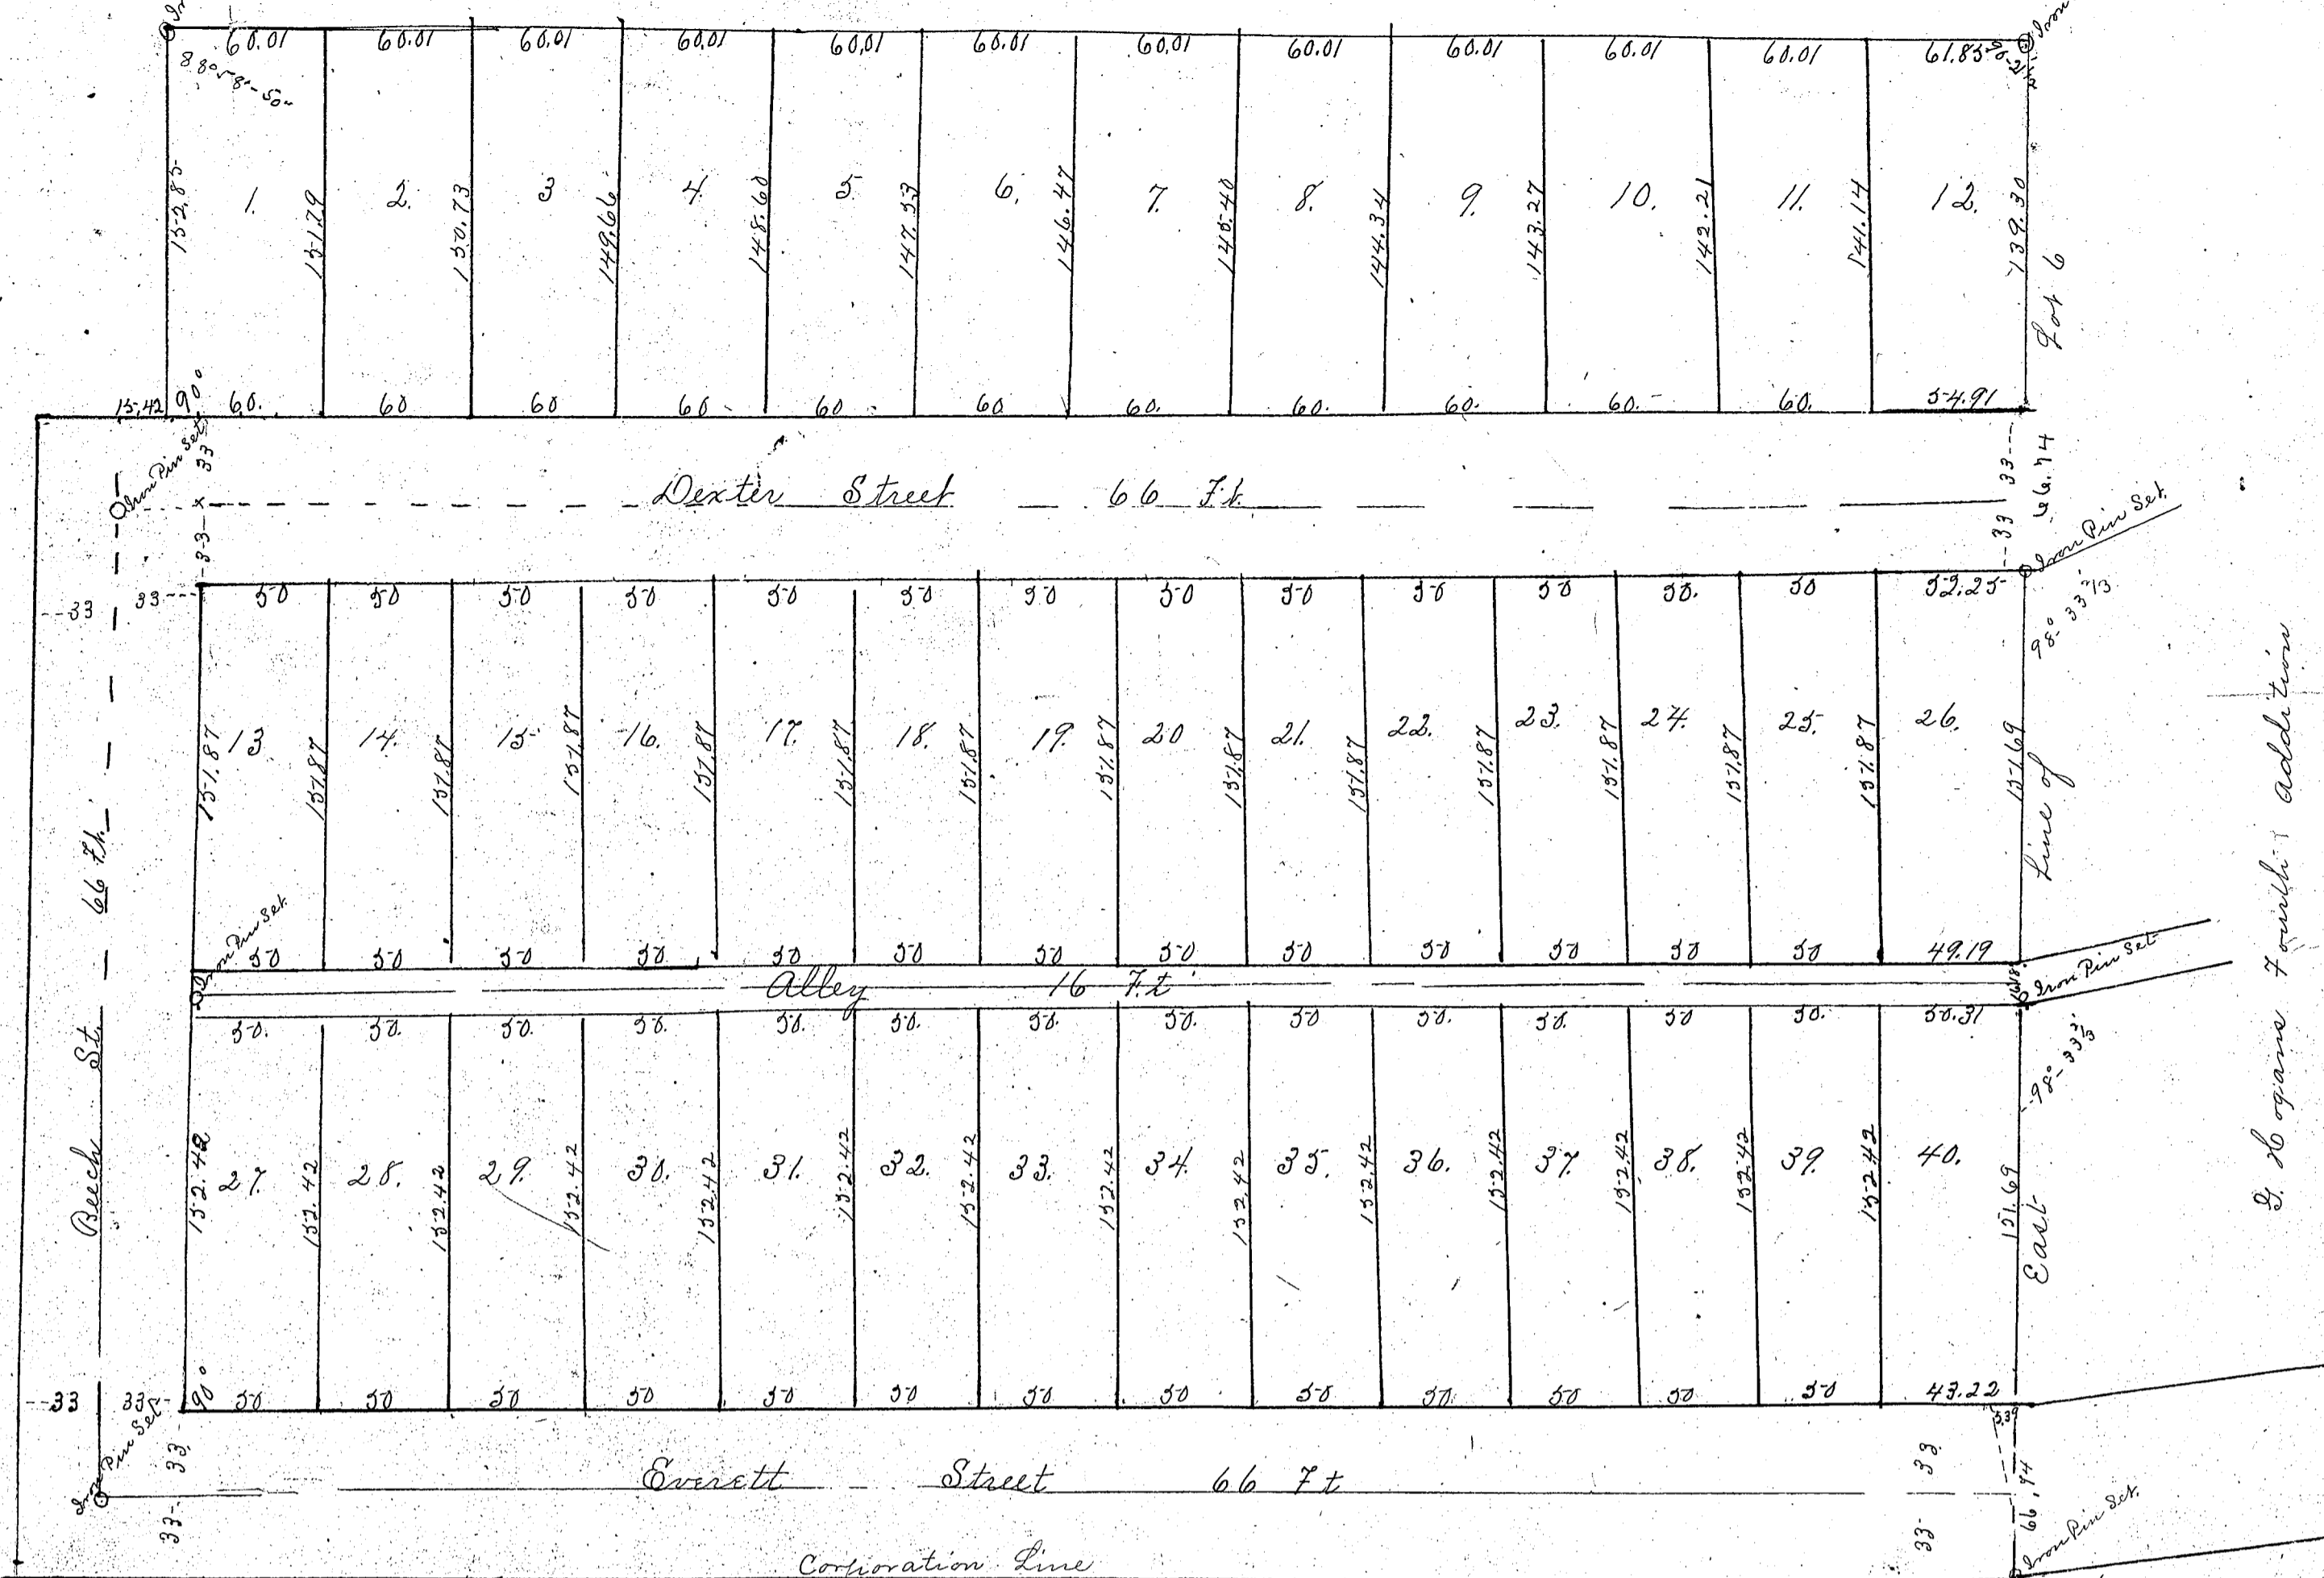 60.01 60.01 60.01 60.01 60.01 60.01 60.01 60.01 60.01 60.01 60.01 61.85
88°-58'-50"
152.85 1. 151.79 2. 150.73 3 149.66 4. 148.60 5 147.53 6. 146.47 7. 145.40 8. 144.34 9. 143.27 10. 142.21 11. 141.14 12. 139.30
Lot 6
15.42 90° 60. 60 60 60 60 60 60. 60. 60. 60. 60. 54.91
Iron Pin Set
33 33
33 33
66.74
Dexter Street 66 Ft.
Iron Pin Set.
33 33 50 50 50 50 50 50 50 50 50 50 50 50. 50 52.25
98° 33 2/3'
151.87 13 151.87 14. 151.87 15 151.87 16. 151.87 17. 151.87 18. 151.87 19. 151.87 20 151.87 21. 151.87 22. 151.87 23. 151.87 24. 151.87 25. 151.87 26. 151.69
Line of
66 Ft.
Iron Pin Set
50 50 50 50 50 50 50 50 50 50 50 50 50 49.19
Alley 16 Ft
16.18
Iron Pin Set
50. 50. 50. 50. 50. 50. 50. 50. 50 50. 50. 50 50. 50.31
98°-33 2/3'
Beech St.
152.42 27. 152.42 28. 152.42 29. 152.42 30. 152.42 31. 152.42 32. 152.42 33. 152.42 34. 152.42 35. 152.42 36. 152.42 37. 152.42 38. 152.42 39. 152.42 40. 151.69
East
G. Hogans Fourth addition
33 33 90° 50 50 50 50 50 50 50 50 50 50. 50 50 50 43.22
Iron Pin Set
33 33
33 33
66.74
Everett Street 66 Ft
Iron Pin Set.
Corporation Line